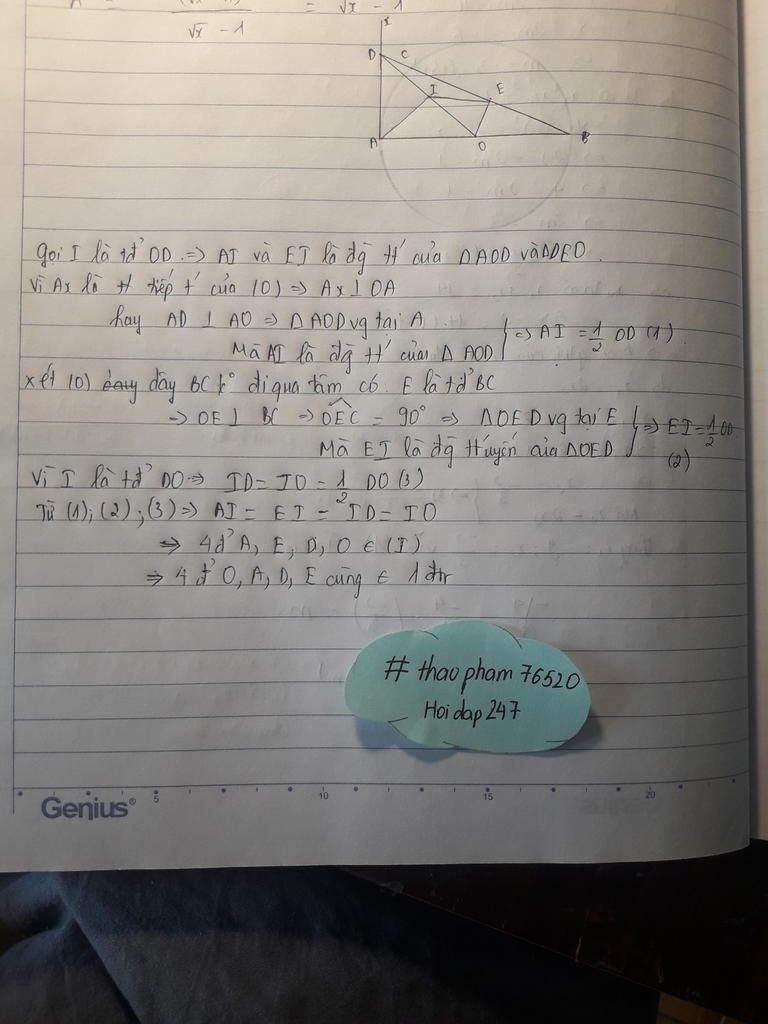 √x - 1 = √x - 1
x
D C
I E
A O B
gọi I là tđ' OD => AI và EI là đg tt' của ΔAOD và ΔDEO.
Vì Ax là tt tiếp t' của (O) => Ax ⊥ OA
hay AD ⊥ AO => ΔAOD vg tại A
Mà AI là đg tt' của Δ AOD => AI = 1/2 OD (1)
xét (O) dây BC k° đi qua tâm có E là tđ' BC
=> OE ⊥ BC => OEC = 90° => ΔOED vg tại E
Mà EI là đg tt'uyến của ΔOED => EI = 1/2 OD (2)
Vì I là tđ' DO => ID = IO = 1/2 DO (3)
Từ (1); (2); (3) => AI = EI = ID = IO
=> 4 đ' A, E, D, O ∈ (I)
=> 4 đ' O, A, D, E cùng ∈ 1 đtr
# thaopham 76520
Hoidap247
Genius®
5 10 15 20